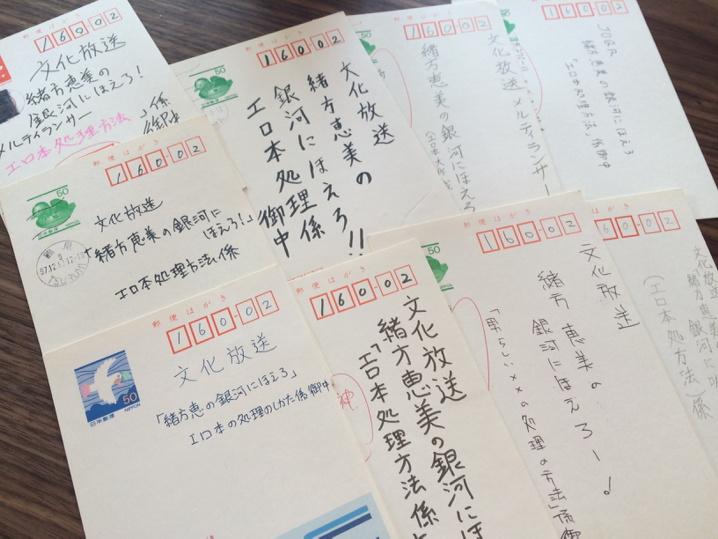 郵便はがき
160-02
文化放送
緒方恵美の
銀河にほえろ!
メルティランサー
エロ本処理方法
係
御中
郵便はがき
160-02
50
文化放送
緒方恵美の
銀河にほえろ!!
エロ本処理係
御中
郵便はがき
160-02
緒方恵美の銀河にほえろ
160-02
文化放送
メルティランサー
JOQR
緒方恵美の銀河にほえろ
「エロ本処理方法」係御中
郵便はがき
160-02
50
文化放送
「緒方恵美の銀河に
ほえろ!」
エロ本処理方法係
郵便はがき
160-02
50
日本郵便
NIPPON
文化放送
「緒方恵の銀河にほえろ」
エロ本の処理のしかた係御中
郵便はがき
160-02
文化放送
緒方恵美の銀河にほ
「エロ本処理方法係
神
郵便はがき
160-02
50
文化放送
緒方恵美の
銀河にほえろー!
「男らしい××の処理の方法」係御
60-02
文化放送
緒方恵美の銀河に
(エロ本処方法)係